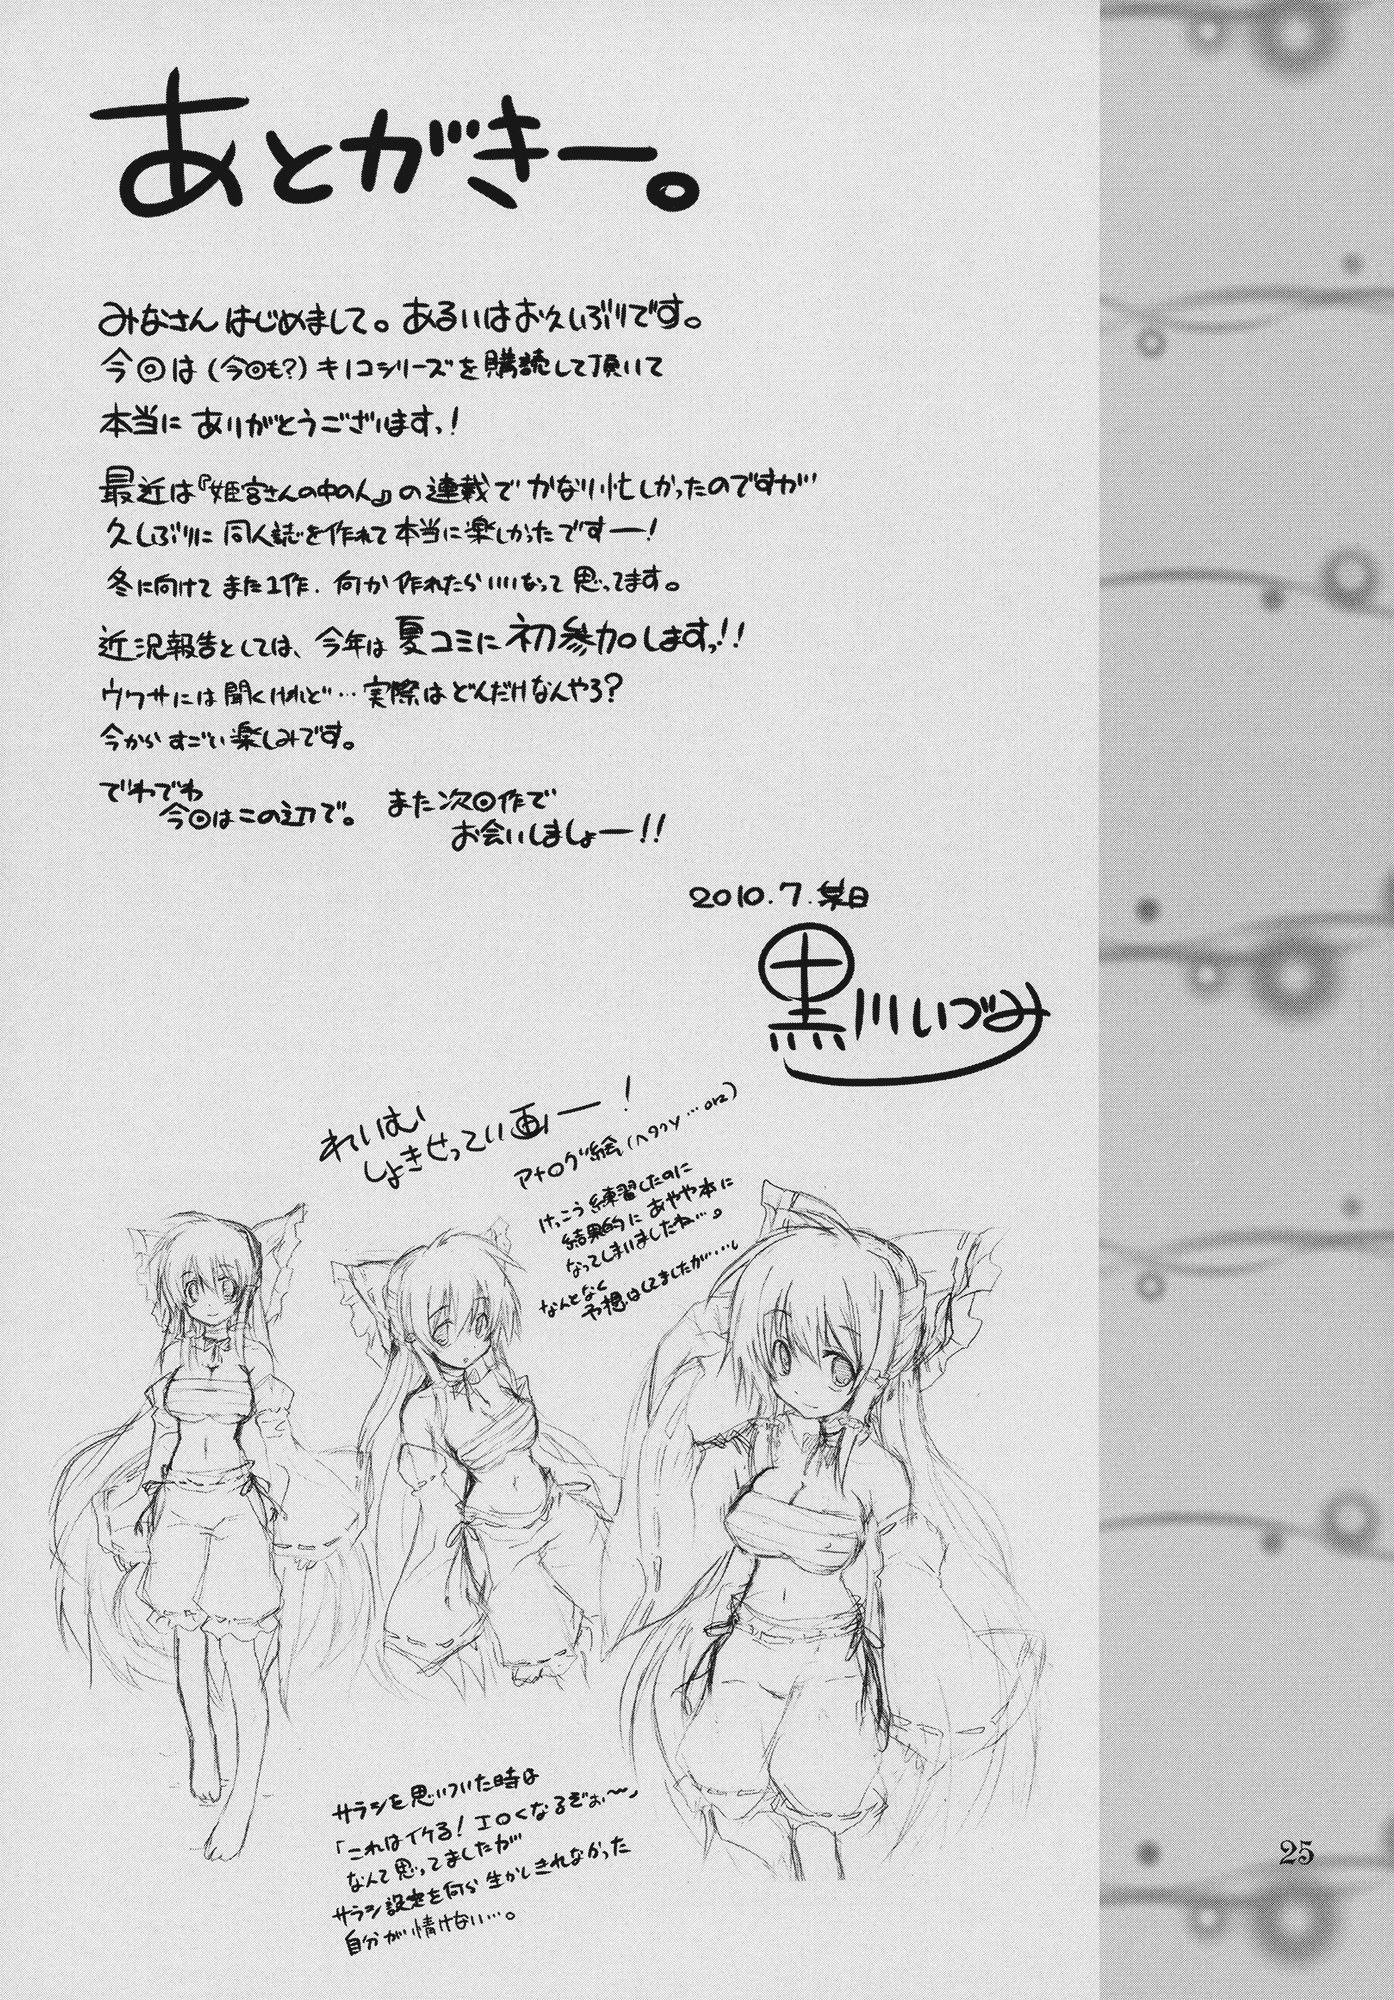 あとがきー。
みなさんはじめまして。あるいはお久しぶりです。
今回は(今回も?)キノコシリーズを購読して頂いて
本当にありがとうございますっ!
最近は『姫宮さんの中の人』の連載でかなり忙しかったのですが
久しぶりに同人誌を作れて本当に楽しかったですー!
冬に向けてまた1作.何か作れたらいいなって思ってます。
近況報告としては、今年は夏コミに初参加しますっ!!
ウワサには聞くけれど…実際はどんだけなんやろ?
今からすごい楽しみです。
でわでわ
今回はこの辺で。
また次回作で
お会いしましょー!!
2010.7.某日
黒川いづみ
れいむい
しょきせってい画ー!
アナログ絵(ヘタッピ…orz)
けっこう練習したのに
結果的にあやや本に
なってしまいましたね…。
なんとなく
予想はしてましたが…。
サラシを思いついた時は
「これはイケる!エロくなるぞぉ〜」
なんて思ってましたが
サラシ設定を何ら生かしきれなかった
自分が情けない…。
25